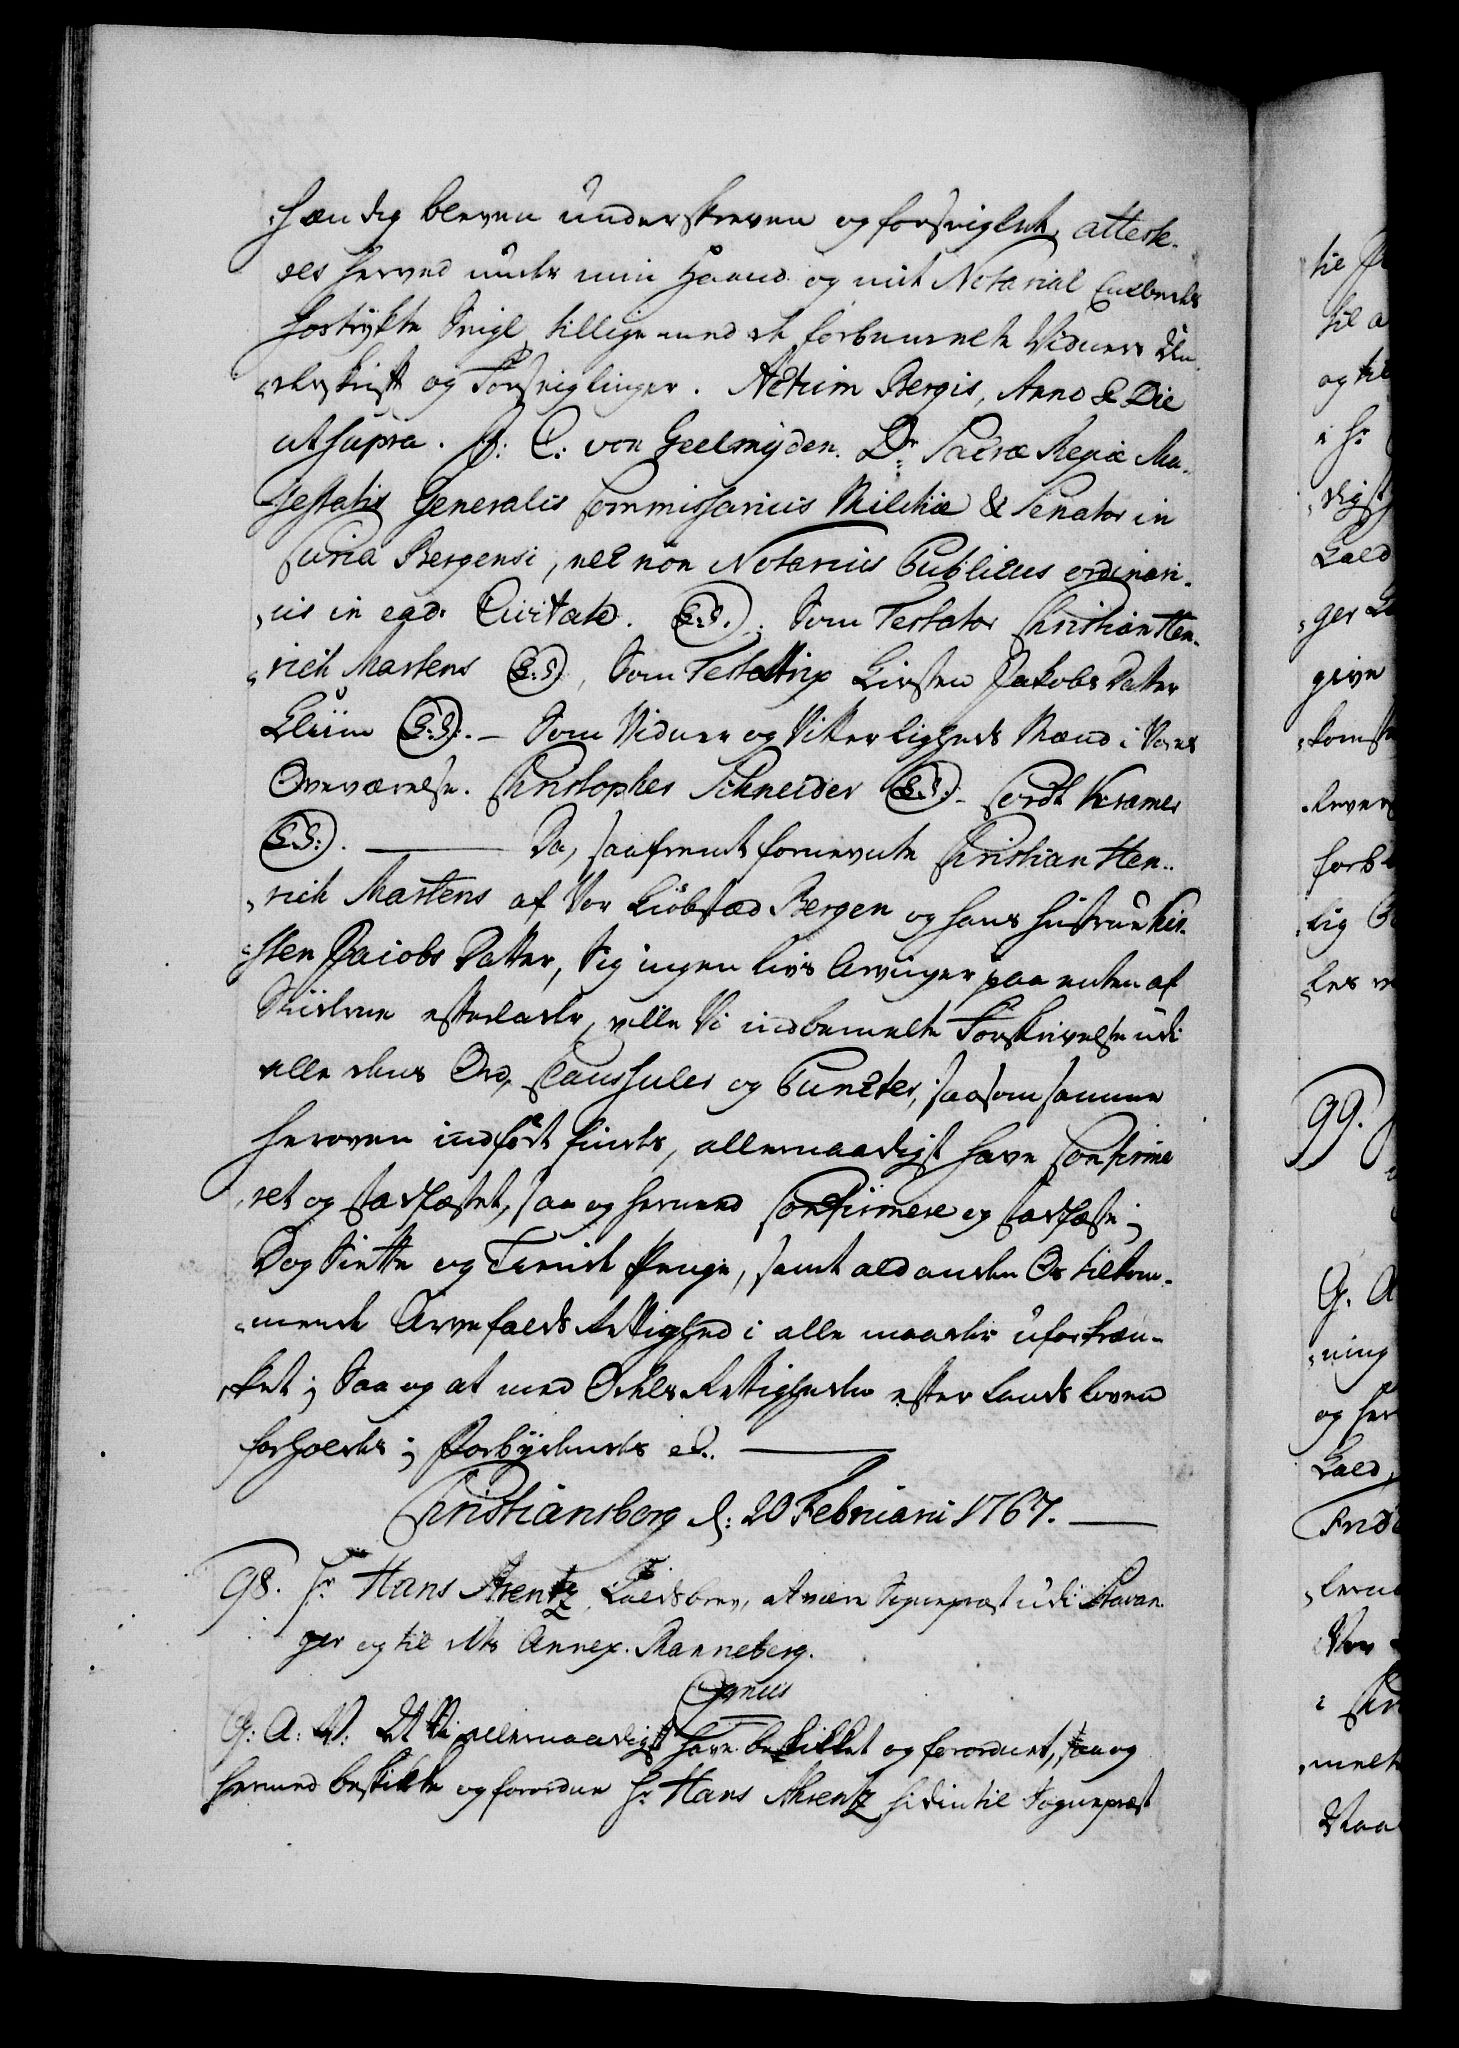 „hændig bleven underskreven og forseiglet, atteste-
res herved under min Haand og mit Notarial Embeds
hostrykte Seigl, tillige med de forbemelte Vidners Un-
„derskrift og Forseiglinger. Actum Bergis, Anno & Die
ut supra. J: C: von Geelmÿden. Dr Sacræ Regiæ Ma-
jestatis Generalis Commissarius Militiæ & Senator in
Curia Bergensi, nec non Notarius Publicus ordinari-
„us in ead: Civitate. (L:S.). Som Testator Christian Hen-
„rich Martens (L:S), Som Testatrix Kirsten Jakobs Datter
Kliim (L:S:). – Som Vidner og Vitterligheds Mænd i Vores
Overværelse. Christopher Schneider (L:S:). – Cordt Kramer
(L:S:). ——— Da, saafremt fornevnte Christian Hen-
„rich Martens af Vor Kiöbstæd Bergen og hans Hustrue Kir-
„sten Jacobs Datter, Sig ingen livs Arvinger paa enten af
Siiderne efterlader, ville Vi indbemelte Forskrivelse udi
alle dens Ord, Clausuler og Puncter, saasom samme
heroven indfört findes, allernaadigst have Confirme
„ret og stadfæstet, saa og hermed Confirmere og stadfæste;
Dog Siette og Tiende Penge, samt ald anden Os tilkom-
„mende Arvefalds Rettighed i alle maader uforkræn-
„ket; Saa og at med Odels Rettigheden efter Lands Loven
forholdes; Forbÿdendes etc. ———
Christiansborg d: 20 Februarii 1767. ———
98. Hr Hans Arentz, Kaldsbrev, at være Sognepræst udi Stavan
ger og til dets Annex. Manneberg.
Gratis
G: A: V: At Vi allernaadigst have beskikket og forordnet, saa og
hermed beskikke og forordne Hr Hans Ahrentz hidindtil Sognepræst

til
til a
og til
i Hr
„digst
Kald
„ger
give
„komst
„lever
forb
„lig
„les

99.
G. A
„ning
og her
Kald,
Fride
„lem
Vor
i
„melt
Maa